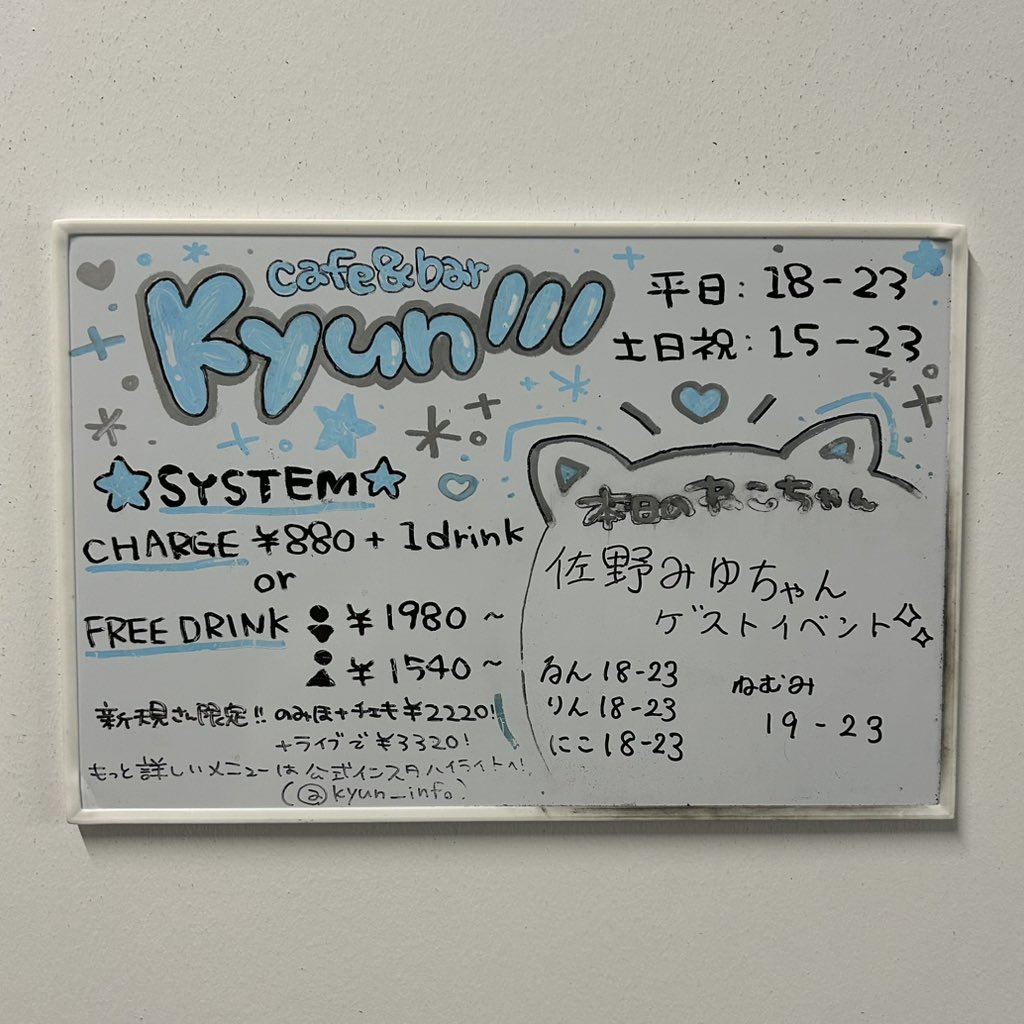 cafe&bar
Kyun!!!
平日: 18-23
土日祝: 15-23
☆SYSTEM☆
CHARGE ¥880+1drink
or
FREE DRINK ¥1980~
¥1540~
新規さん限定!! のみほ+チェキ¥2220!
+ライブで¥3320!
もっと詳しいメニューは公式インスタハイライトへ!
(@kyun_info)
本日のねこちゃん
佐野みゆちゃん
ゲストイベント
るん 18-23
りん 18-23
にこ 18-23
ねむみ
19-23